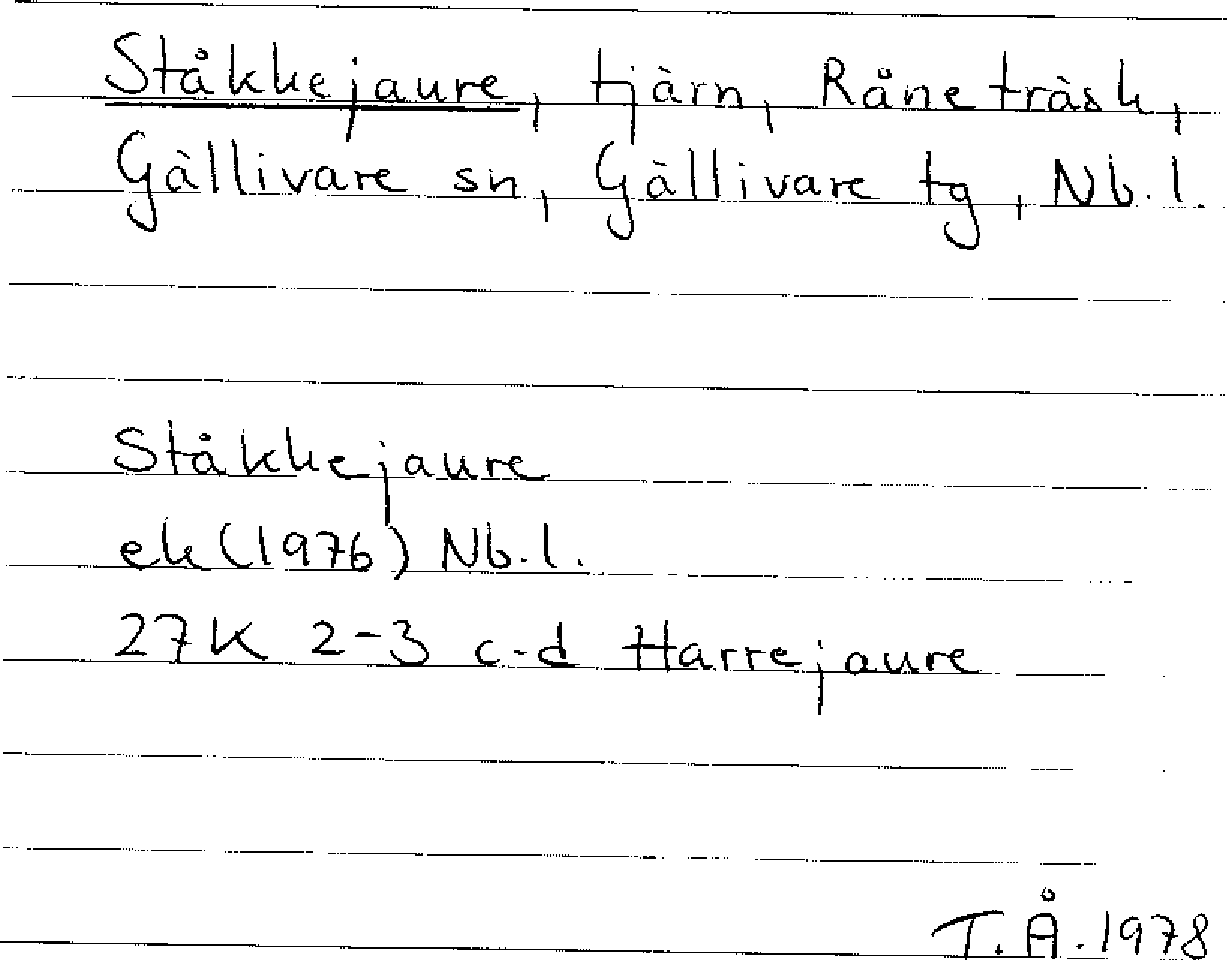 Ståkkejaure, tjärn, Råne träsk,
Gällivare sn, Gällivare tg, Nb.l.
Ståkkejaure
ek (1976) Nb.l.
27K 2-3 c-d Harrejaure
T.Å. 1978